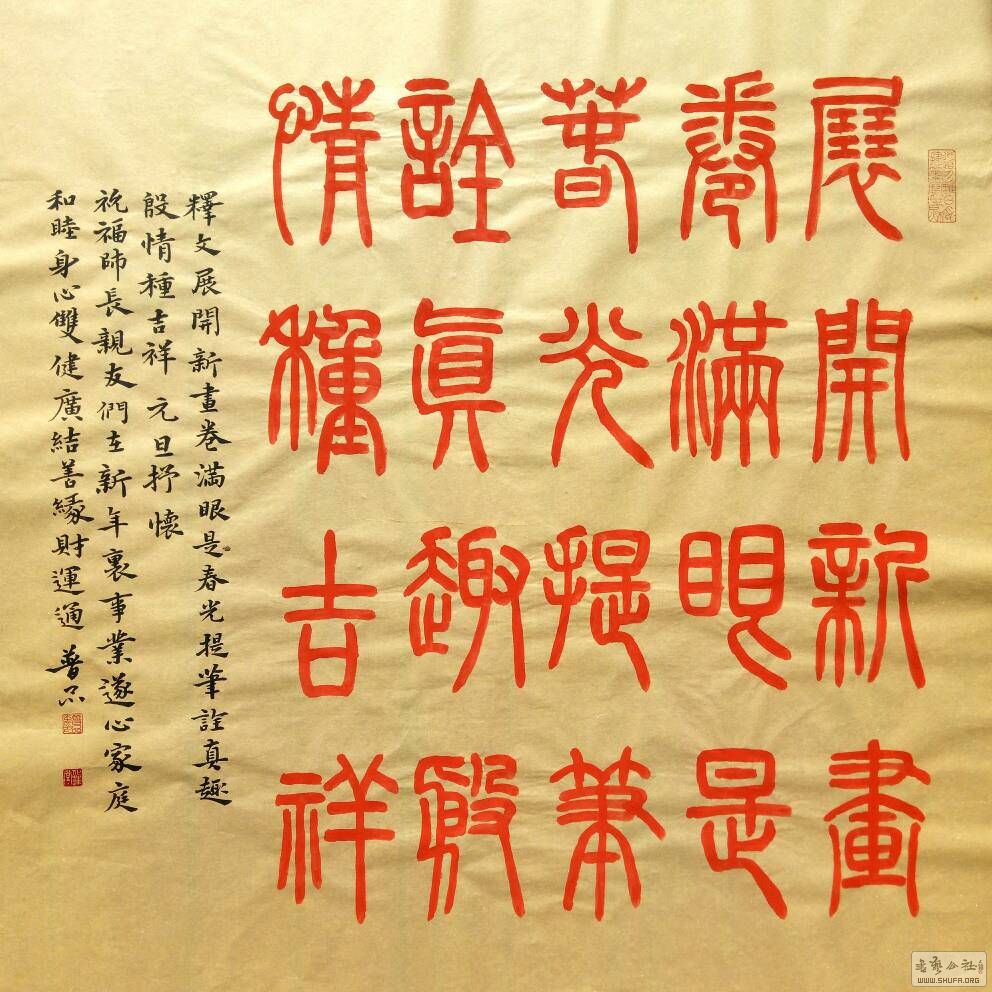 展開新畫
卷滿眼是
春光提筆
詮真趣殷
情種吉祥
釋文展開新畫卷滿眼是春光提筆詮真趣
殷情種吉祥元旦抒懷
祝福師長親友們在新年裏事業遂心家庭
和睦身心雙健廣結善緣財運通
WWW.SHUFA.ORG